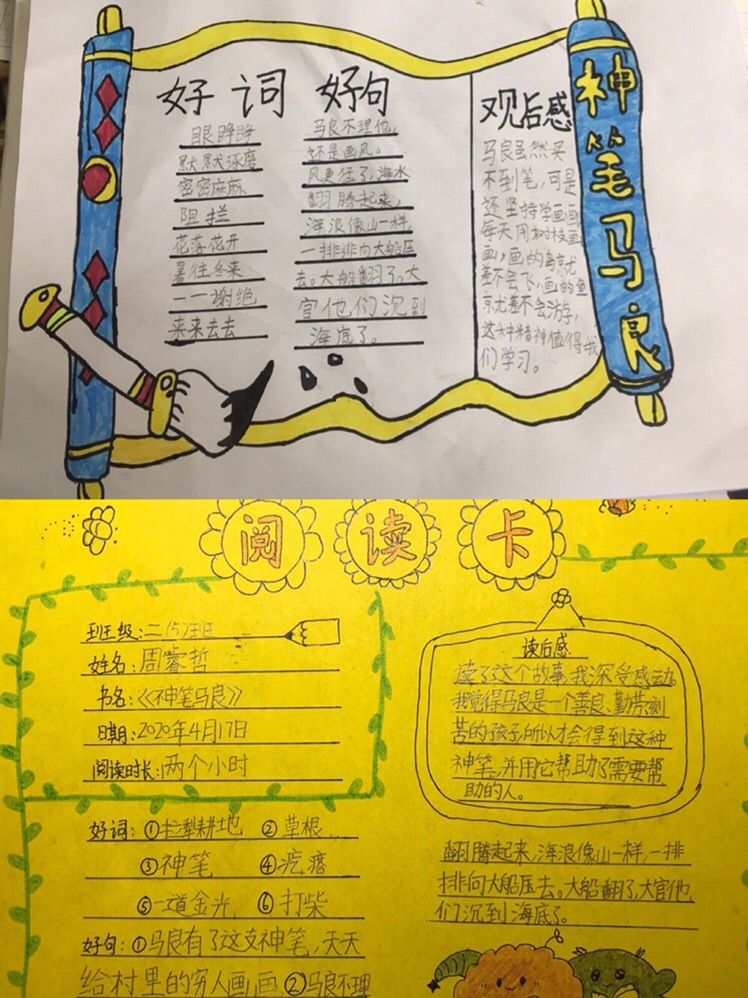 神笔马良
好词
眼睁睁
默默琢磨
密密麻麻
阻拦
花落花开
暑往冬来
一一谢绝
来来去去
好句
马良不理他,
还是画风。
风更狂了,海水
翻腾起来,
海浪像山一样,
一排排向大船压
去。大船翻了。大
官他们沉到
海底了。
观后感
马良虽然买
不到笔,可是
还坚持学画画
每天用树枝画
画,画的鸟就
差不会飞,画的鱼
京尤差不会游字,
这种精神值得我
们学习。
阅读卡
班级:二(5)班
姓名:周睿哲
书名:《神笔马良》
日期:2020年4月17日
阅读时长:两个小时
好词:①拉犁耕地 ②草根
③神笔 ④疙瘩
⑤一道金光 ⑥打柴
好句:①马良有了这支神笔,天天
给村里的穷人画,画.②马良不理
读后感
读了这个故事,我深受感动。
我觉得马良是一个善良、勤劳刻
苦的孩子,所以才会得到这种
神笔,并用它帮助了需要帮
助的人。
翻腾起来,海浪像山一样,一排
排向大船压去。大船翻了,大官他
们沉到海底了。